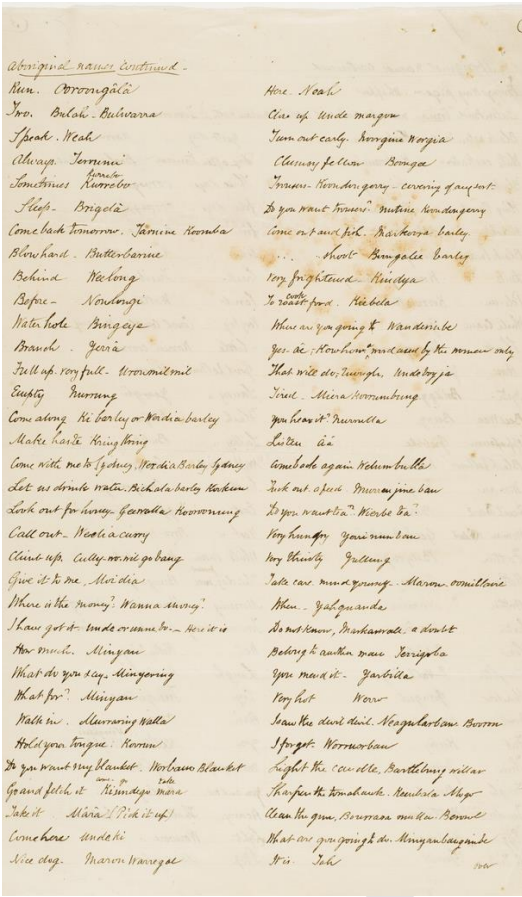 Aboriginal names continued -
Run. Ooroongâlâ
Two. Bulah. Bulwarra
Speak. Weah
Always. Terrunii
Kurrabo
Sometimes Kurrebo
Sleep - Brigelâ
Come back tomorrow. Tarnine Koomba
Blow hard - Butterbarine
Behind Weelong
Before - Nowlongi
Water hole Bingeye
Branch. Yerra
Full up. very full - Uroumilmil
Empty Murrung
Come along Ki barley or Wordia barley
Make haste Kring Kring
Come with me to Sydney. Wordia Barley Sydney
Let us drink water. Bichala barley
Look out for honey - Geewalla Koorooonung
Call out - Werlia curry
Climb up. Cully-wo-wil go bang
Give it to me, Moidia
Where is the money? Wanna money?
I have got it - unde or unne bo - Here it is
How much. Minyan
What do you say. Minyering
What for? Minyan
Walk in. Murraring walla
Hold your tongue. Korrun
Do you want my blanket. Worbane Blanket
Go and fetch it Kiindego mara
Take it Mara (Pick it up)
Come here undeki
Nice dog. Maron Warregal
Here. Neah
Close up Unde margon
Turn out early. Worgia
Clumsy fellow Boongee
Trousers - Koondengerry - covering of any sort.
Do you want trousers? nutine Koondengerry
Come out and fish. Markorra barley
. . . . shoot Bungalee barley
Very frightened Kindya
To cook food. Kiebela
Where are you going to Wanderinbe
Yes. ae; Kowhow? word used by the women only
That will do; Enough. Undeboyja
Tired. Miera Korrumbung
You hear it? Nurrulla
Listen âà
Come back again Welumbulla
Pick out a feed. Murrunjine ban
Do you want tea? Weerbe tea?
Very hungry Yarinunban
Very thirsty Yullung
Take care. mind Maron
When - Yahquanda
Do not know, Markawale a doubt
Belong to another man Terrigoba
You mend it - Yarbilla
Very hot Werro
I saw the devil devil. Neagularban Boroin
I forget. Worrunorban
Light the candle, Bartlebung willar
Sharpen the tomahawk. Keenbala Mogo
Clean the gun, Bourrasa mulla Berowe
What are you going to do. Minyanbangande
It is. Tah
over